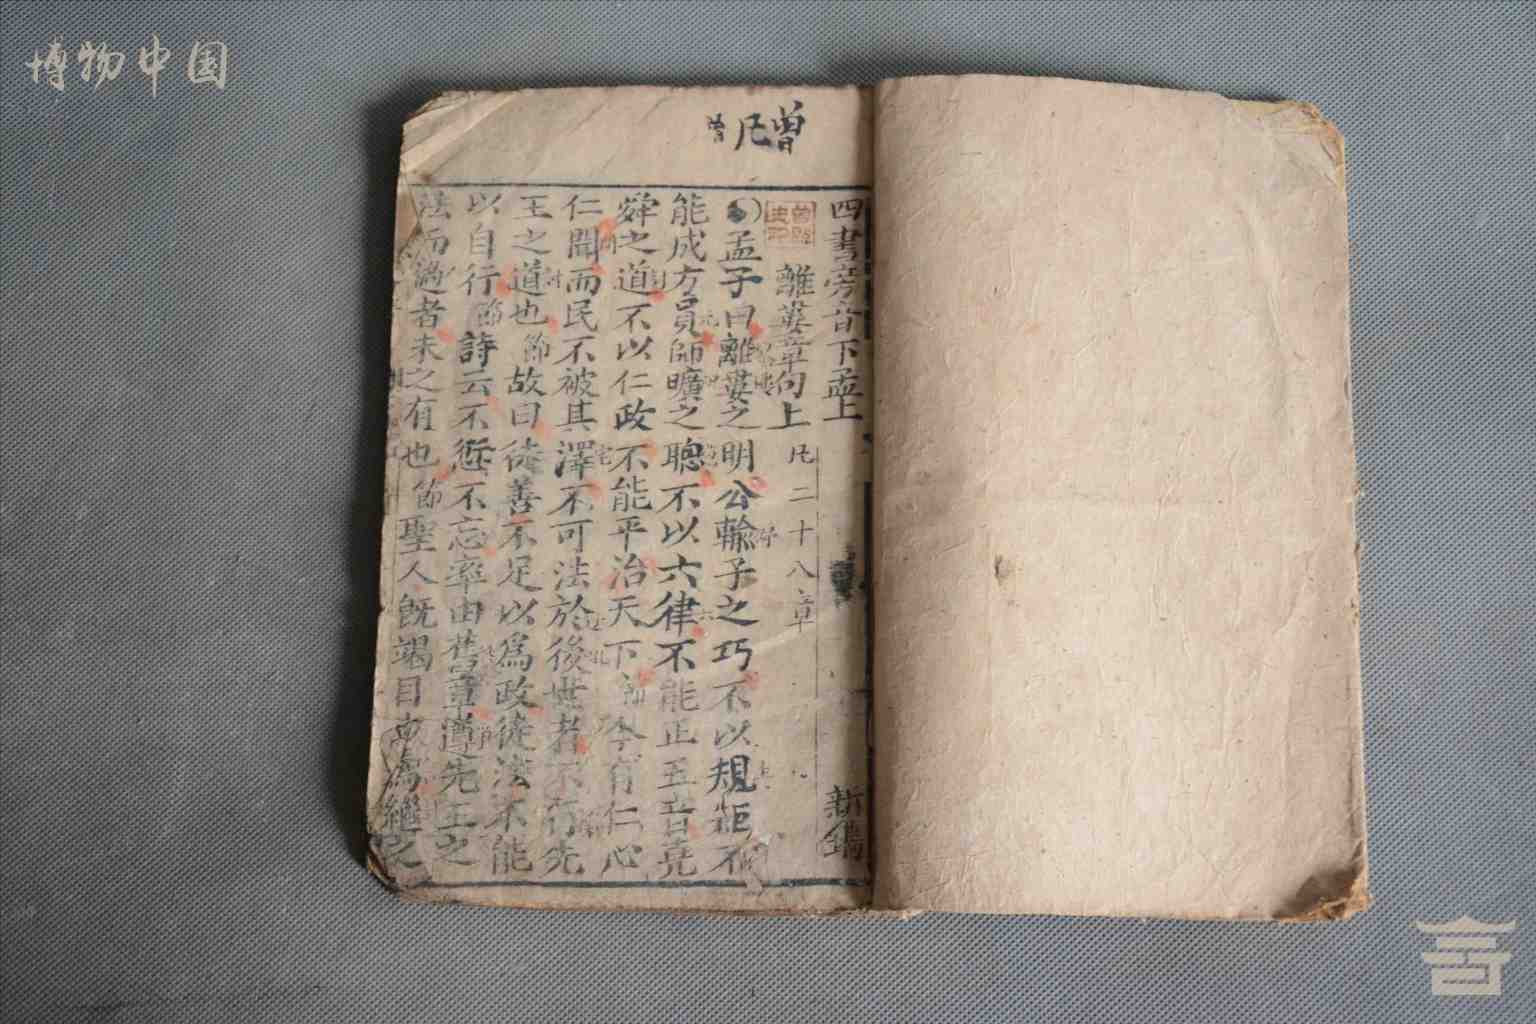 博物中国
曾
凡
曾
四書旁音下孟上
新鐫
離婁章句上 凡二十八章
孟子曰離婁之明公輸子之巧不以規矩不
能成方員師曠之聰不以六律不能正五音堯
舜之道不以仁政不能平治天下節今有仁心
仁聞而民不被其澤不可法於後世者不行先
王之道也節故曰徒善不足以為政徒法不能
以自行節詩云不愆不忘率由舊章遵先王之
法而過者未之有也節聖人既竭目力焉繼之